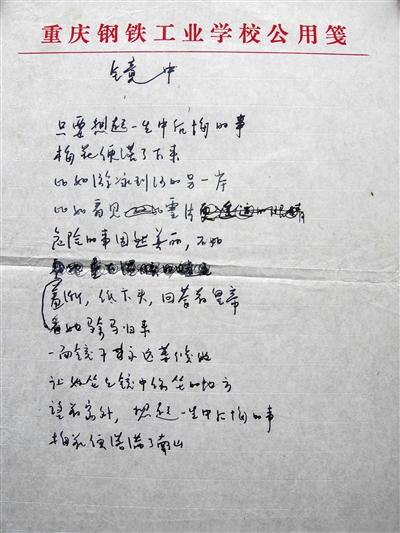 重庆钢铁工业学校公用笺
镜中
只要想起一生中后悔的事
梅花便落了下来
比如游泳到河的另一岸
比如看见的雪片
危险的事固然美丽,不如
羞惭,低下头,回答着皇帝
看她骑马归来
一面镜子永远等候她
让她坐在镜中常坐的地方
望着窗外,想起一生中后悔的事
梅花便落满了南山